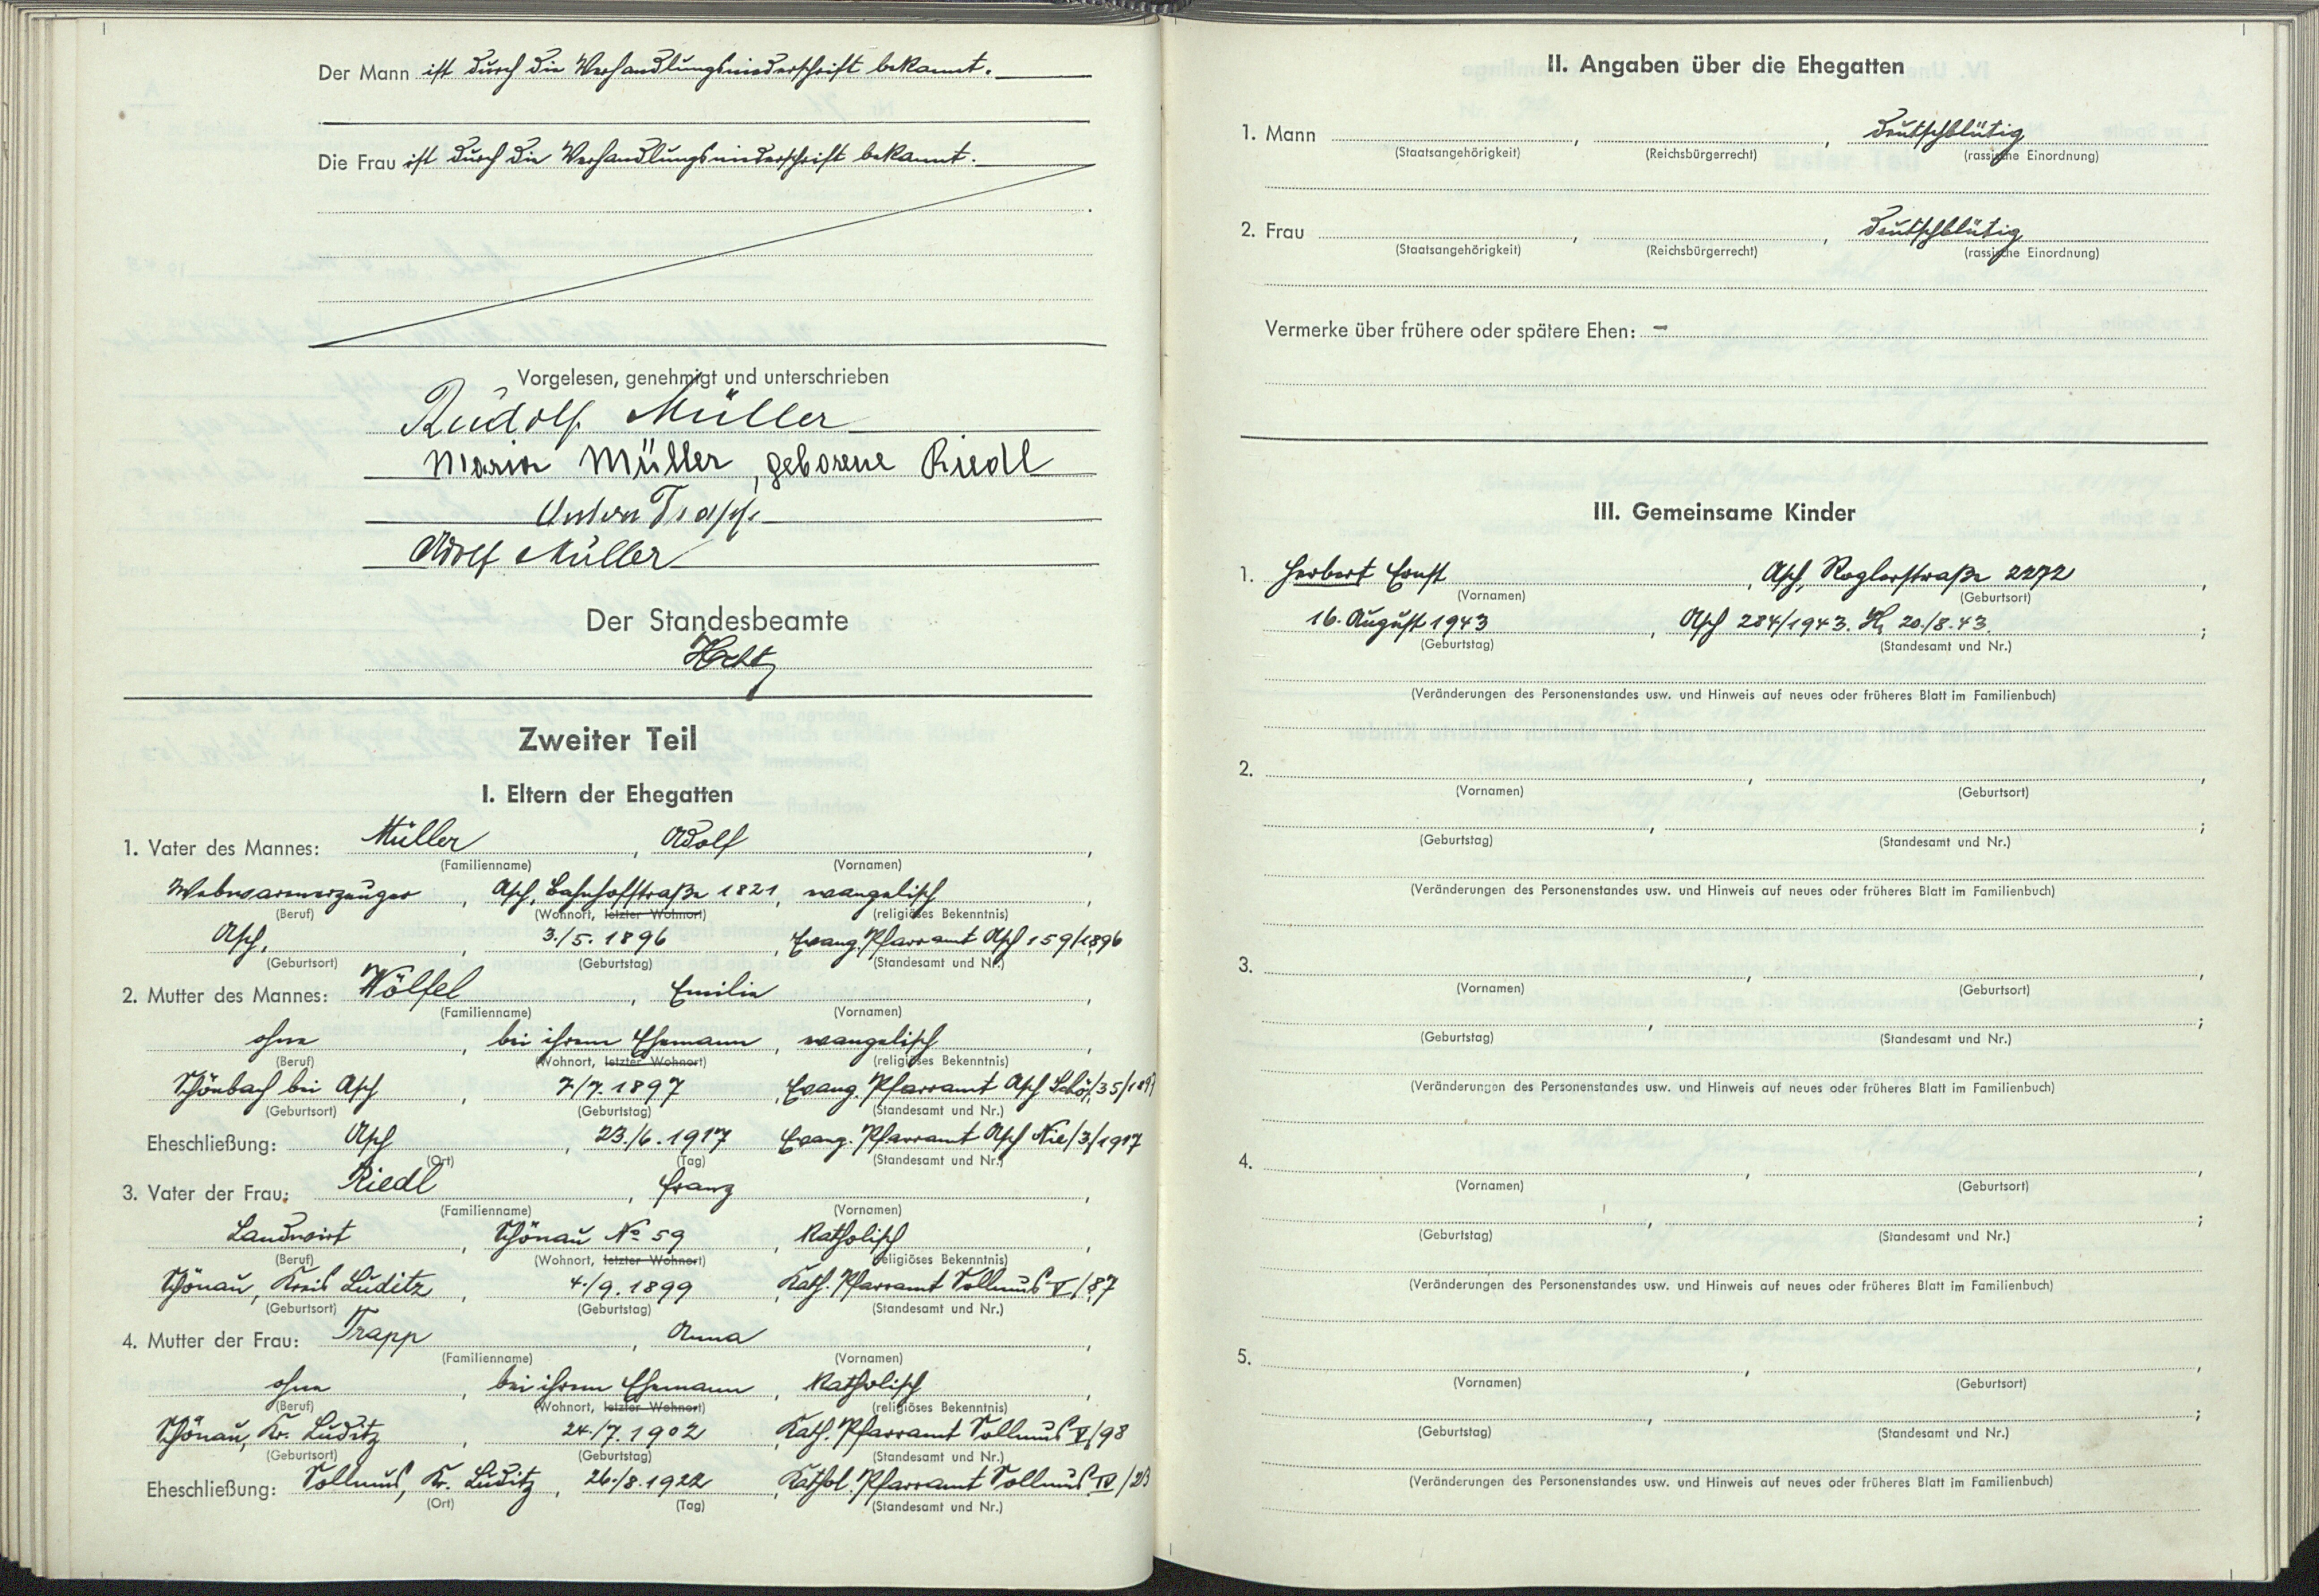 Der Mann ist durch die Verhandlungsniederschrift bekannt.
Die Frau ist durch die Verhandlungsniederschrift bekannt.
Vorgelesen, genehmigt und unterschrieben
Rudolf Müller
Maria Müller, geborene Riedl
Trapp
Adolf Müller
Der Standesbeamte
Zweiter Teil
I. Eltern der Ehegatten
1. Vater des Mannes: Müller, Adolf,
(Familienname) (Vornamen)
Webwarenerzeuger, Asch, Bahnhofstraße 1821, evangelisch,
(Beruf) (Wohnort, letzter Wohnort) (religiöses Bekenntnis)
Asch, 3./5. 1896, Evang. Pfarramt Asch 159/1896
(Geburtsort) (Geburtstag) (Standesamt und Nr.)
2. Mutter des Mannes: Wölfel, Emilie,
(Familienname) (Vornamen)
ohne, bei ihrem Ehemann, evangelisch,
(Beruf) (Wohnort, letzter Wohnort) (religiöses Bekenntnis)
Schönbach bei Asch, 7/7. 1897, Evang. Pfarramt Asch Schö/35/1897
(Geburtsort) (Geburtstag) (Standesamt und Nr.)
Eheschließung: Asch, 23./6. 1917 Evang. Pfarramt Asch Nie/3/1917
(Ort) (Tag) (Standesamt und Nr.)
3. Vater der Frau: Riedl, Franz,
(Familienname) (Vornamen)
Landwirt, Schönau No 59, Katholisch,
(Beruf) (Wohnort, letzter Wohnort) (religiöses Bekenntnis)
Schönau, Kreis Luditz, 4./9. 1899, Kath. Pfarramt Sollmus V/87
(Geburtsort) (Geburtstag) (Standesamt und Nr.)
4. Mutter der Frau: Trapp, Anna,
(Familienname) (Vornamen)
ohne, bei ihrem Ehemann, Katholisch,
(Beruf) (Wohnort, letzter Wohnort) (religiöses Bekenntnis)
Schönau, Kr. Luditz, 24./7. 1902, Kath. Pfarramt Sollmus V/98
(Geburtsort) (Geburtstag) (Standesamt und Nr.)
Eheschließung: Sollmus, Kr. Luditz, 26./8. 1922, Kathol. Pfarramt Sollmus IV/23
(Ort) (Tag) (Standesamt und Nr.)
II. Angaben über die Ehegatten
1. Mann , , deutschblütig
(Staatsangehörigkeit) (Reichsbürgerrecht) (rassische Einordnung)
2. Frau , , deutschblütig
(Staatsangehörigkeit) (Reichsbürgerrecht) (rassische Einordnung)
Vermerke über frühere oder spätere Ehen: -
III. Gemeinsame Kinder
1. Herbert Ernst, Asch, Roglerstraße 2272,
(Vornamen) (Geburtsort)
16. August 1943, Asch 284/1943. 20./8. 43.;
(Geburtstag) (Standesamt und Nr.)
(Veränderungen des Personenstandes usw. und Hinweis auf neues oder früheres Blatt im Familienbuch)
2. , ,
(Vornamen) (Geburtsort)
, ;
(Geburtstag) (Standesamt und Nr.)
(Veränderungen des Personenstandes usw. und Hinweis auf neues oder früheres Blatt im Familienbuch)
3. , ,
(Vornamen) (Geburtsort)
, ;
(Geburtstag) (Standesamt und Nr.)
(Veränderungen des Personenstandes usw. und Hinweis auf neues oder früheres Blatt im Familienbuch)
4. , ,
(Vornamen) (Geburtsort)
, ;
(Geburtstag) (Standesamt und Nr.)
(Veränderungen des Personenstandes usw. und Hinweis auf neues oder früheres Blatt im Familienbuch)
5. , ,
(Vornamen) (Geburtsort)
, ;
(Geburtstag) (Standesamt und Nr.)
(Veränderungen des Personenstandes usw. und Hinweis auf neues oder früheres Blatt im Familienbuch)